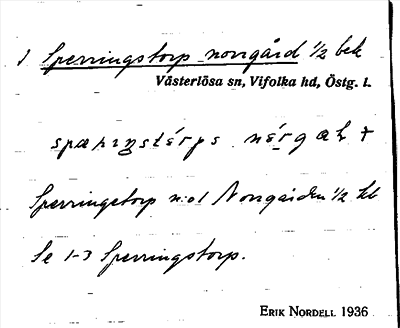 1 Sperringstorp norrgård 1/2 bek
Västerlösa sn, Vifolka hd, Östg. l.
Sperringstorp n:o1 Norrgården 1/2 hl
Se 1-3 Sperringstorp.
ERIK NORDELL 1936